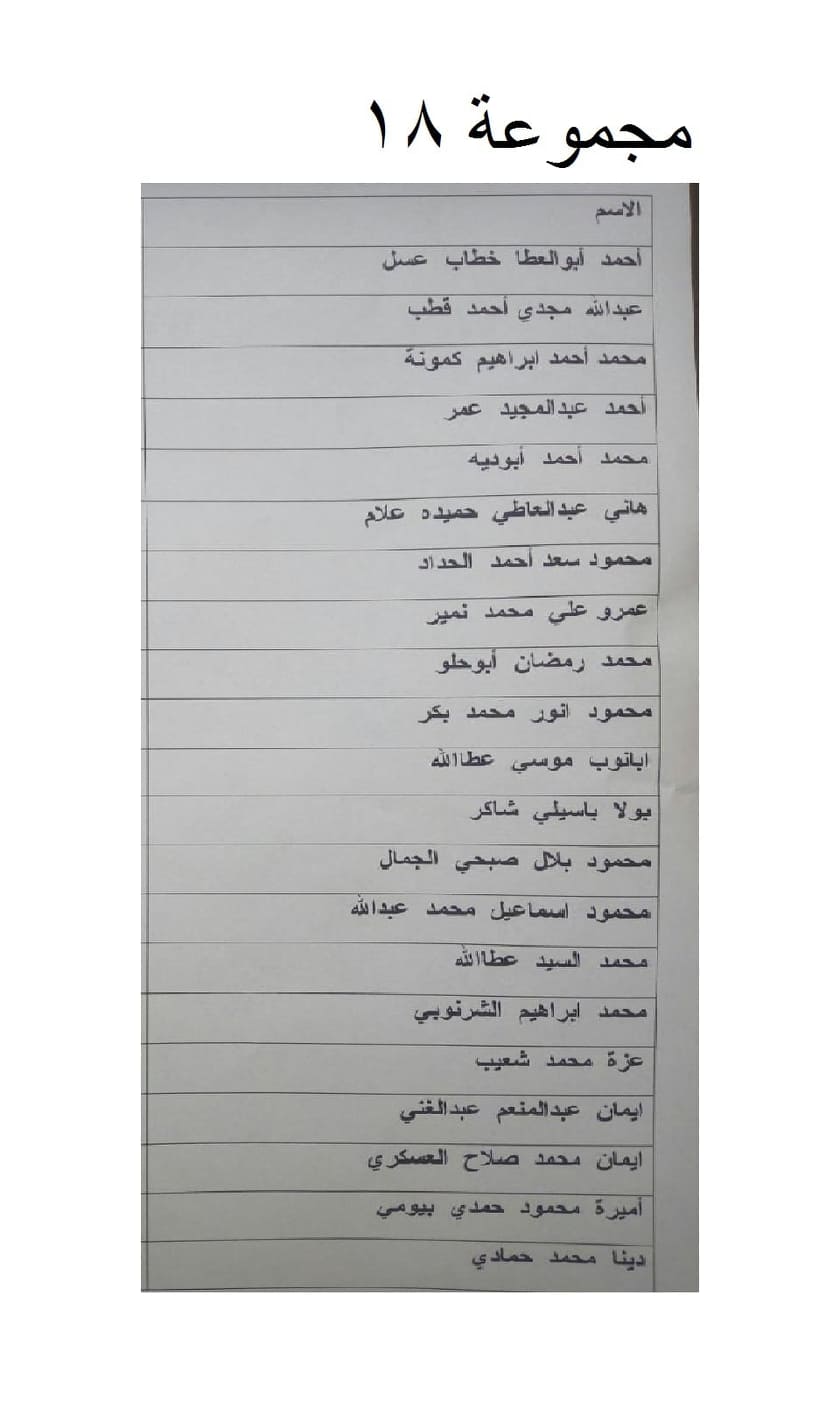 مجموعة ١٨
الاسم
أحمد أبوالعطا خطاب عسل
عبدالله مجدي أحمد قطب
محمد أحمد ابراهيم كمونة
أحمد عبدالمجيد عمر
محمد أحمد أبوديه
هاني عبدالعاطي حميده علام
محمود سعد أحمد الحداد
عمرو علي محمد نمير
محمد رمضان أبوحلو
محمود انور محمد بكر
ابانوب موسي عطاالله
بولا باسيلي شاكر
محمود بلال صبحي الجمال
محمود اسماعيل محمد عبدالله
محمد السيد عطاالله
محمد ابراهيم الشرنوبي
عزة محمد شعيب
ايمان عبدالمنعم عبدالغني
ايمان محمد صلاح العسكري
أميرة محمود حمدي بيومي
دينا محمد حمادي